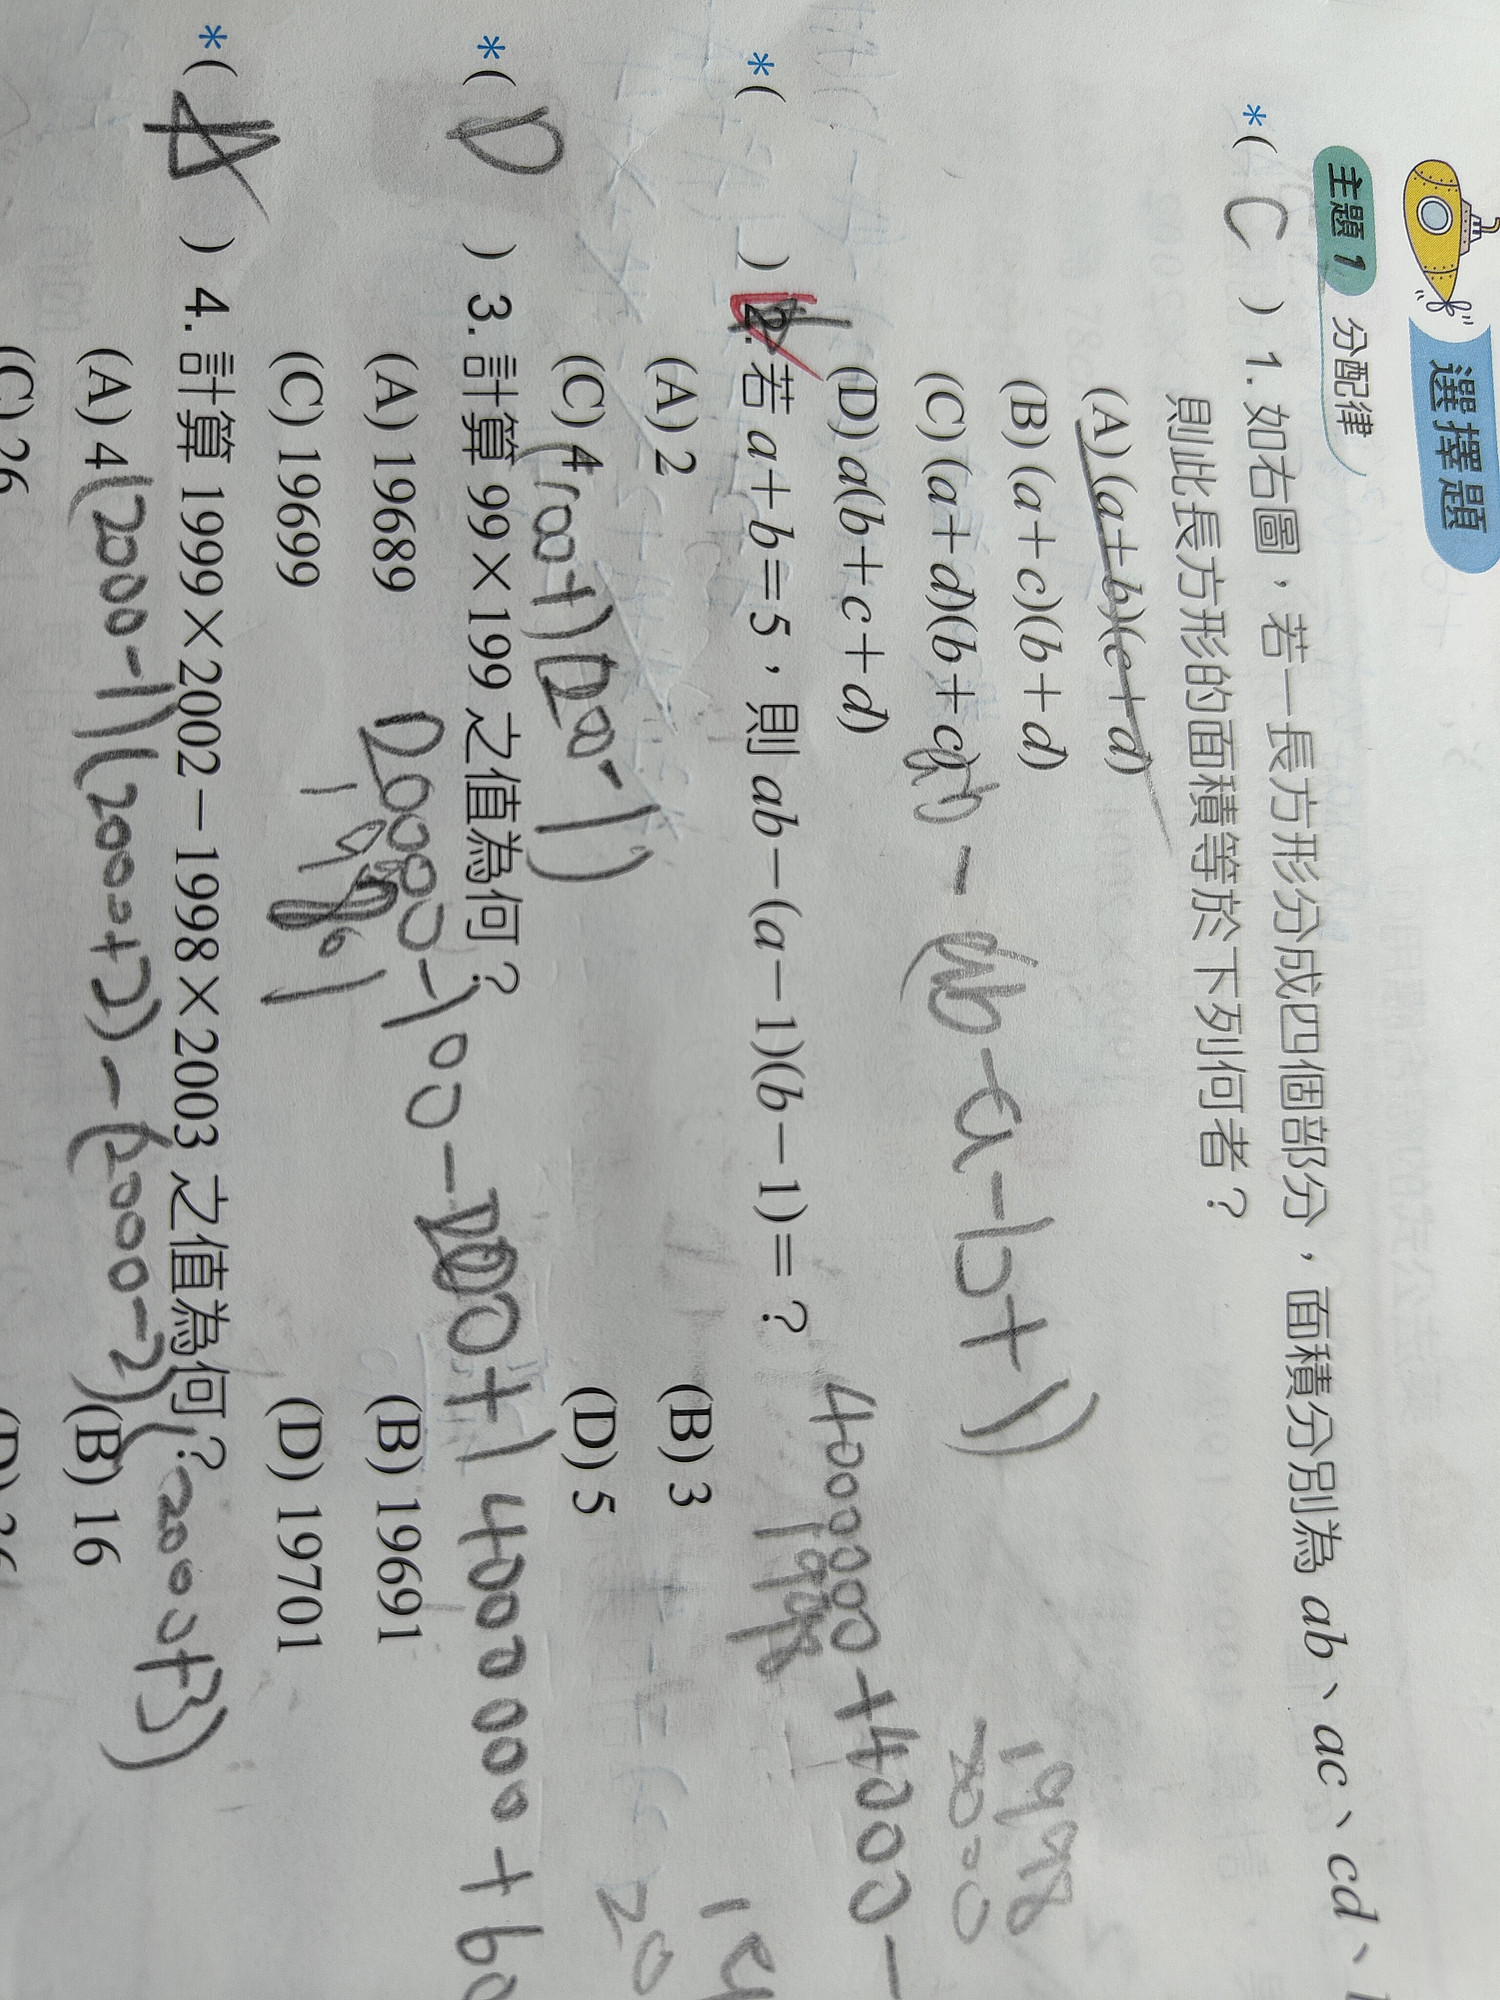 選擇題
主題 1 分配律
*( C ) 1. 如右圖,若一長方形分成四個部分,面積分別為 ab、ac、cd、
則此長方形的面積等於下列何者?
(A) (a+b)(c+d)
(B) (a+c)(b+d)
(C) (a+d)(b+c)
(D) a(b+c+d)
(ab - a - b + 1)
*( ) 2. 若 a+b=5,則 ab-(a-1)(b-1)=?
(A) 2 (B) 3
(C) 4 (D) 5
4000000+4000-
1998
2000
(200-1)
*( D ) 3. 計算 99×199 之值為何?
(A) 19689 (B) 19691
(C) 19699 (D) 19701
4000000+
*( A ) 4. 計算 1999×2002-1998×2003 之值為何?
(2000-1)(2000+2)-(2000-2)(2000+3)
(A) 4 (B) 16
(C) 26